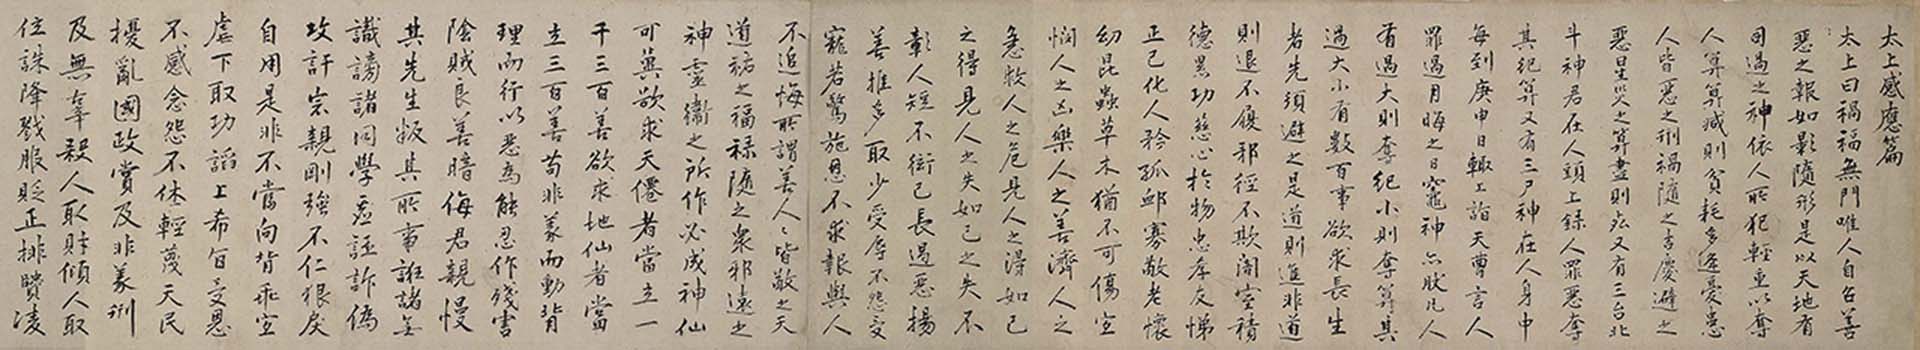 太上感應篇
太上曰禍福無門唯人自召善
惡之報如影隨形是以天地有
司過之神依人所犯輕重以奪
人算算減則貧耗多逢憂患
人皆惡之刑禍隨之吉慶避之
惡星災之算盡則死又有三台北
斗神君在人頭上錄人罪惡奪
其紀算又有三尸神在人身中
每到庚申日輒上詣天曹言人
罪過月晦之日竈神亦然凡人
有過大則奪紀小則奪算其
過大小有數百事欲求長生
者先須避之是道則進非道
則退不履邪徑不欺闇室積
德累功慈心於物忠孝友悌
正己化人矜孤卹寡敬老懷
幼昆蟲草木猶不可傷宜
憫人之凶樂人之善濟人之
急救人之危見人之得如己
之得見人之失如己之失不
彰人短不衒己長遏惡揚
善推多取少受辱不怨受
寵若驚施恩不求報與人
不追悔所謂善人人皆敬之天
道祐之福祿隨之衆邪遠之
神靈衞之所作必成神仙
可冀欲求天僊者當立一
千三百善欲求地仙者當
立三百善苟非義而動背
理而行以惡為能忍作殘害
陰賊良善暗侮君親慢
其先生叛其所事誑諸無
識謗諸同學虛誣詐偽
攻訐宗親剛強不仁狠戾
自用是非不當向背乖宜
虐下取功諂上希旨受恩
不感念怨不休輕蔑天民
擾亂國政賞及非義刑
及無辜殺人取財傾人取
位誅降戮服貶正排賢凌